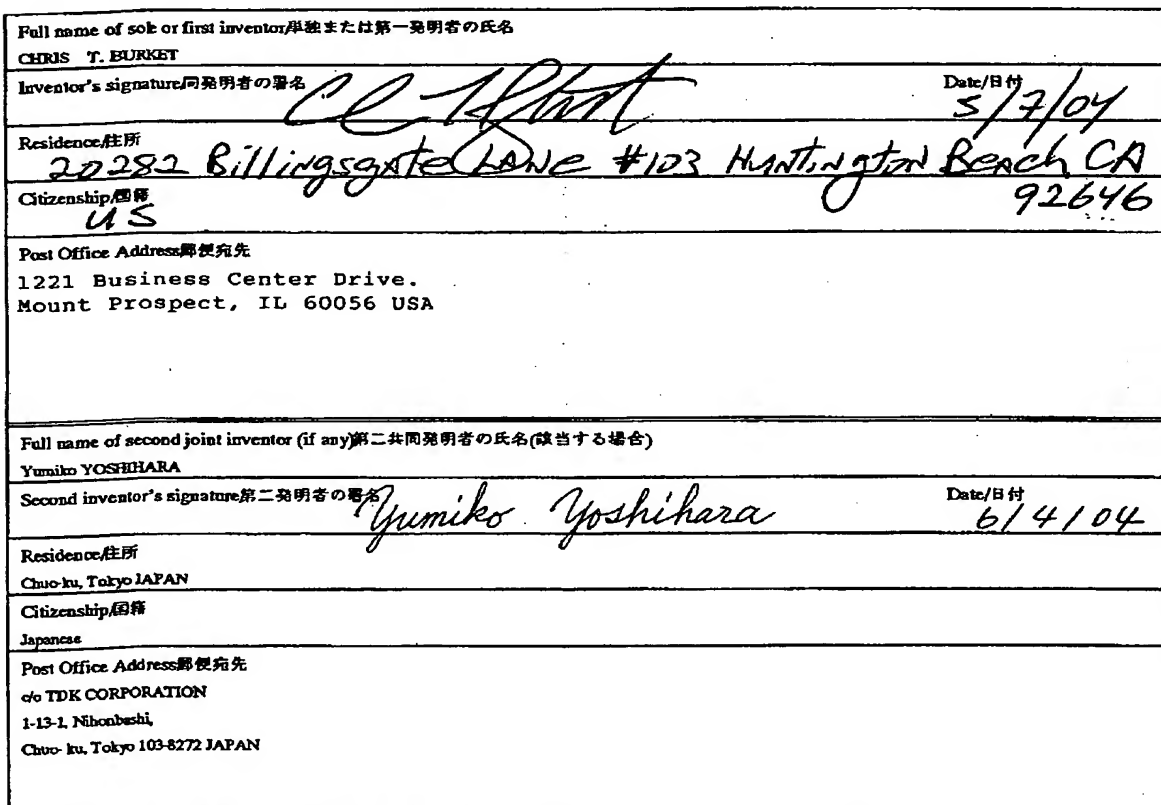 Full name of sole or first inventor/単独または第一発明者の氏名
CHRIS T. BURKET
Inventor's signature/同発明者の署名 Date/日付 5/7/04
Residence/住所
20282 Billingsgate LANE #103 Huntington Beach CA
Citizenship/国籍 92646
US
Post Office Address/郵便宛先
1221 Business Center Drive.
Mount Prospect, IL 60056 USA
Full name of second joint inventor (if any)/第二共同発明者の氏名(該当する場合)
Yumiko YOSHIHARA
Second inventor's signature/第二発明者の署名 Yumiko Yoshihara Date/日付 6/4/04
Residence/住所
Chuo-ku, Tokyo JAPAN
Citizenship/国籍
Japanese
Post Office Address/郵便宛先
c/o TDK CORPORATION
1-13-1, Nihonbashi,
Chuo- ku, Tokyo 103-8272 JAPAN